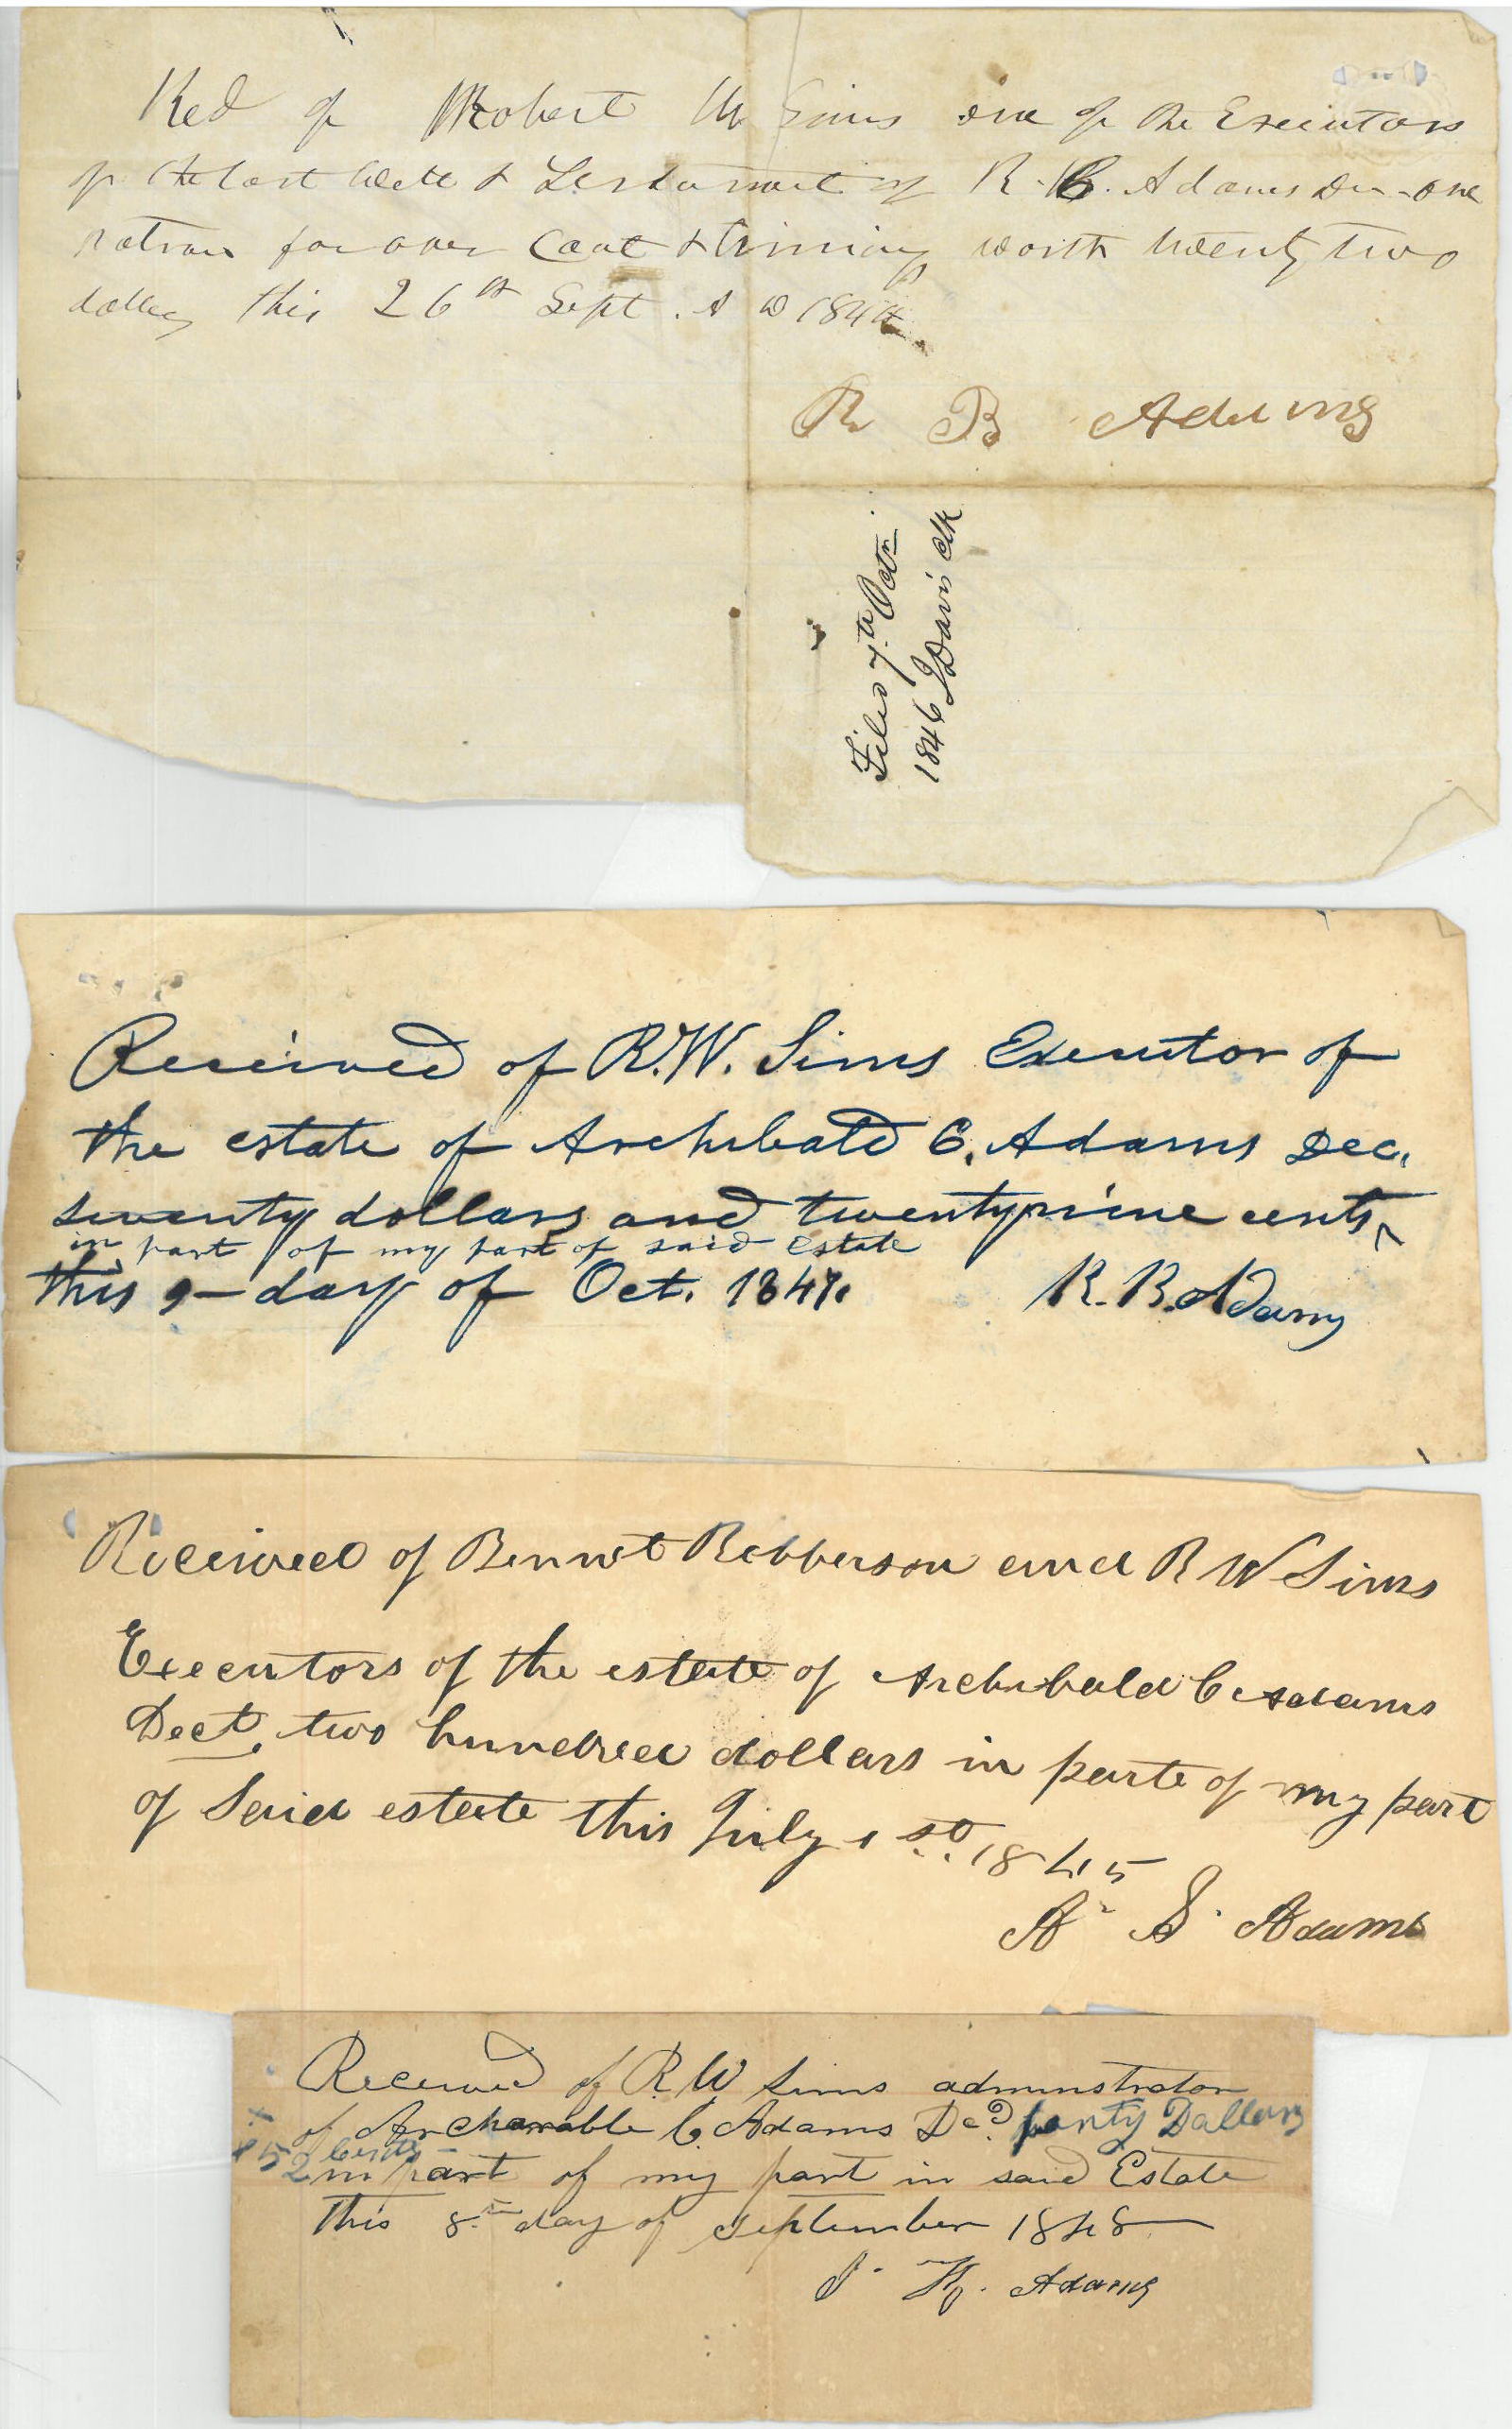 Recd of Robert W Sims one of the Executors
of the last Will & Testament of R. C. Adams Dec one
patron for over Coat & triming worth twenty two
dollars this 26th Sept. A D 1844
R B Adams
Filed 7th Octr
1846 J Davis Clk
Received of R.W. Sims Executor of
the estate of Archibald C. Adams Dec.
seventy dollars and twentynine cents ^
in part of my part of said estate
this 9 – day of Oct. 1847.
R. B. Adams
Received of Bennet Robberson and R W Sims
Executors of the estate of Archibald C Adams
Decd, two hundred dollars in parte of my part
of Said estate this July 1st. 1845
A. S. Adams
Received of R. W Sims adminstrator
of Archarable C. Adams Decd. forty Dallars
& 52 Cents
in part of my part in said Estate
this 8th day of September 1848
J. H. Adams